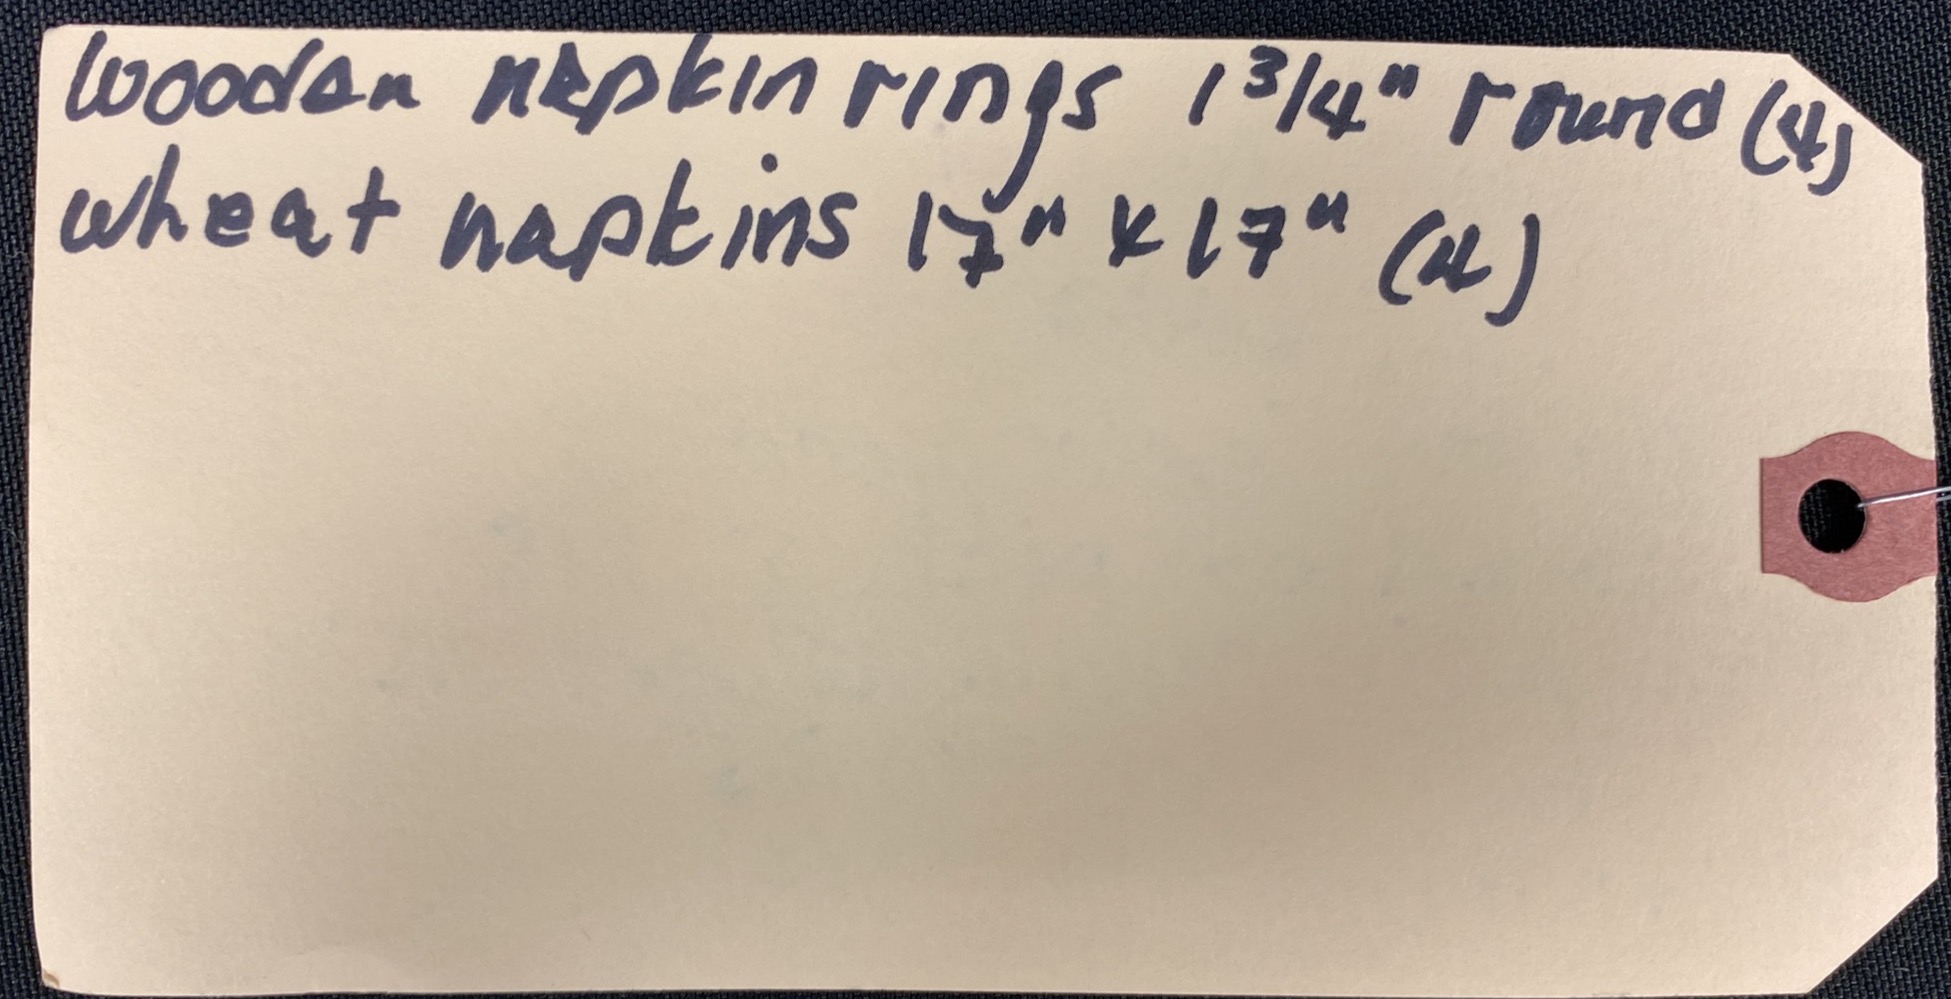 Wooden napkin rings 1 3/4" round (4)
wheat napkins 17" x 17" (4)